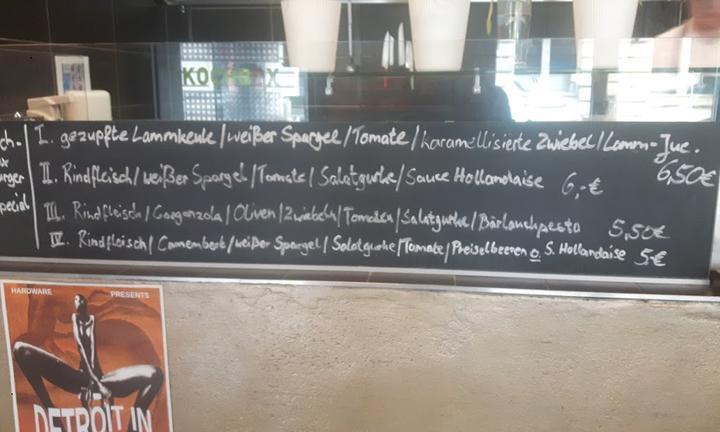 KOCHBOX
ch-
ox
urger
pecial
I. gezupfte Lammkeule / weißer Spargel / Tomate / karamellisierte Zwiebel / Lamm-Jue.
6,50€
II. Rindfleisch / weißer Spargel / Tomate / Salatgurke / Sauce Hollandaise 6,-€
III. Rindfleisch / Gorgonzola / Oliven / Zwiebeln / Tomaten / Salatgurke / Bärlauchpesto 5,50€
IV. Rindfleisch / Camembert / weißer Spargel / Salatgurke / Tomate / Preiselbeeren o. S. Hollandaise 5-€
HARDWARE PRESENTS
DETROIT IN